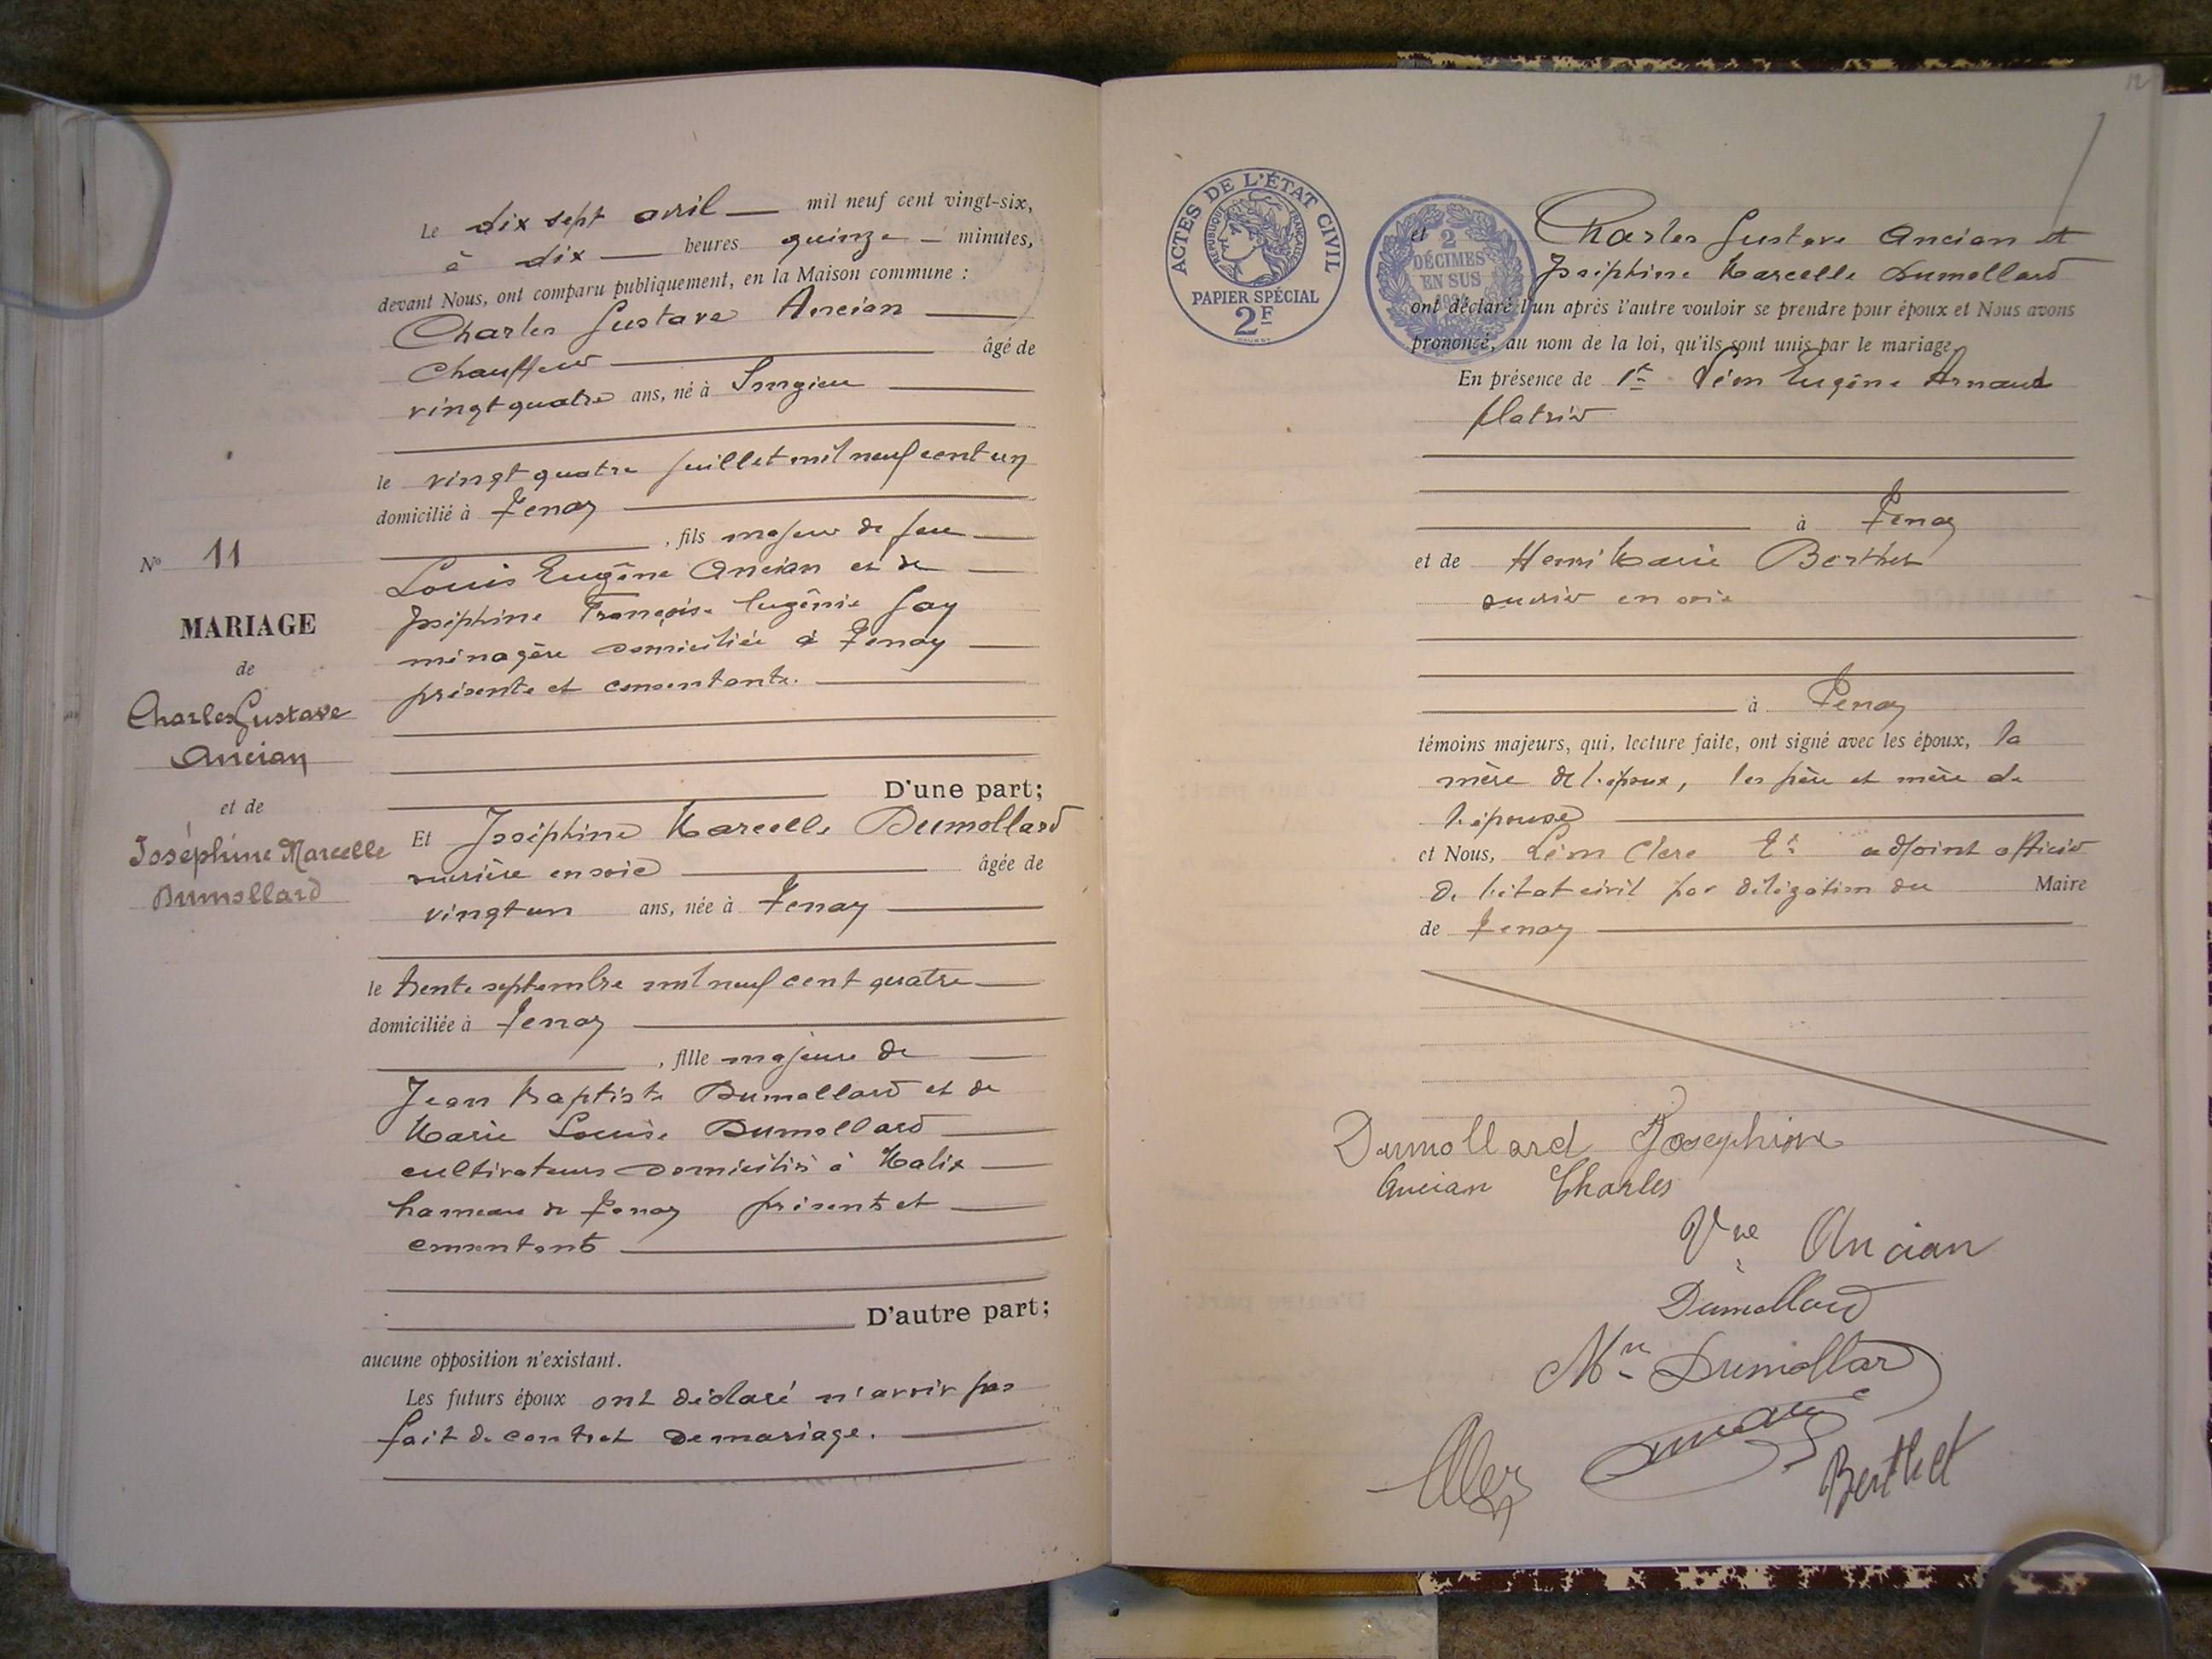 Le dix sept avril mil neuf cent vingt-six,
à dix heures quinze minutes,
devant Nous, ont comparu publiquement, en la Maison commune :
Charles Gustave Ancian
Chauffeur âgé de
vingt quatre ans, né à
le vingt quatre juillet mil neuf cent un
domicilié à Tenay
, fils majeur de feu
Louis Eugène Ancian et de
Joséphine Françoise Eugénie Gay
ménagère domiciliée à Tenay
présente et consentante.
D'une part;
Et Joséphine Marcelle Dumollard
ouvrière en soie âgée de
vingt un ans, née à Tenay
le trente septembre mil neuf cent quatre
domiciliée à Tenay
, fille majeure de
Jean Baptiste Dumollard et de
Marie Louise Dumollard
cultivateurs domiciliés à Malix
hameau de Tenay présents et
consentants
D'autre part;
aucune opposition n'existant.
Les futurs époux ont déclaré n'avoir pas
fait de contrat de mariage.
N° 11
MARIAGE
de
Charles Gustave
Ancian
et de
Joséphine Marcelle
Dumollard
12
ACTES DE L'ÉTAT CIVIL
RÉPUBLIQUE FRANÇAISE
PAPIER SPÉCIAL
2F
2
DÉCIMES
EN SUS
et Charles Gustave Ancian et
Joséphine Marcelle Dumollard
ont déclaré l'un après l'autre vouloir se prendre pour époux et Nous avons
prononcé, au nom de la loi, qu'ils sont unis par le mariage.
En présence de Léon Eugène Arnaud
platrier
à Tenay
et de Henri Marie Berthet
ouvrier en soie
à Tenay
témoins majeurs, qui, lecture faite, ont signé avec les époux, la
mère de l'époux, les père et mère de
l'épouse
et Nous, Léon Clerc adjoint officier
de l'état civil par délégation du Maire
de Tenay
Dumollard Josephine
Ancian Charles
Vve Ancian
Dumollard
Dumollard
Berthet